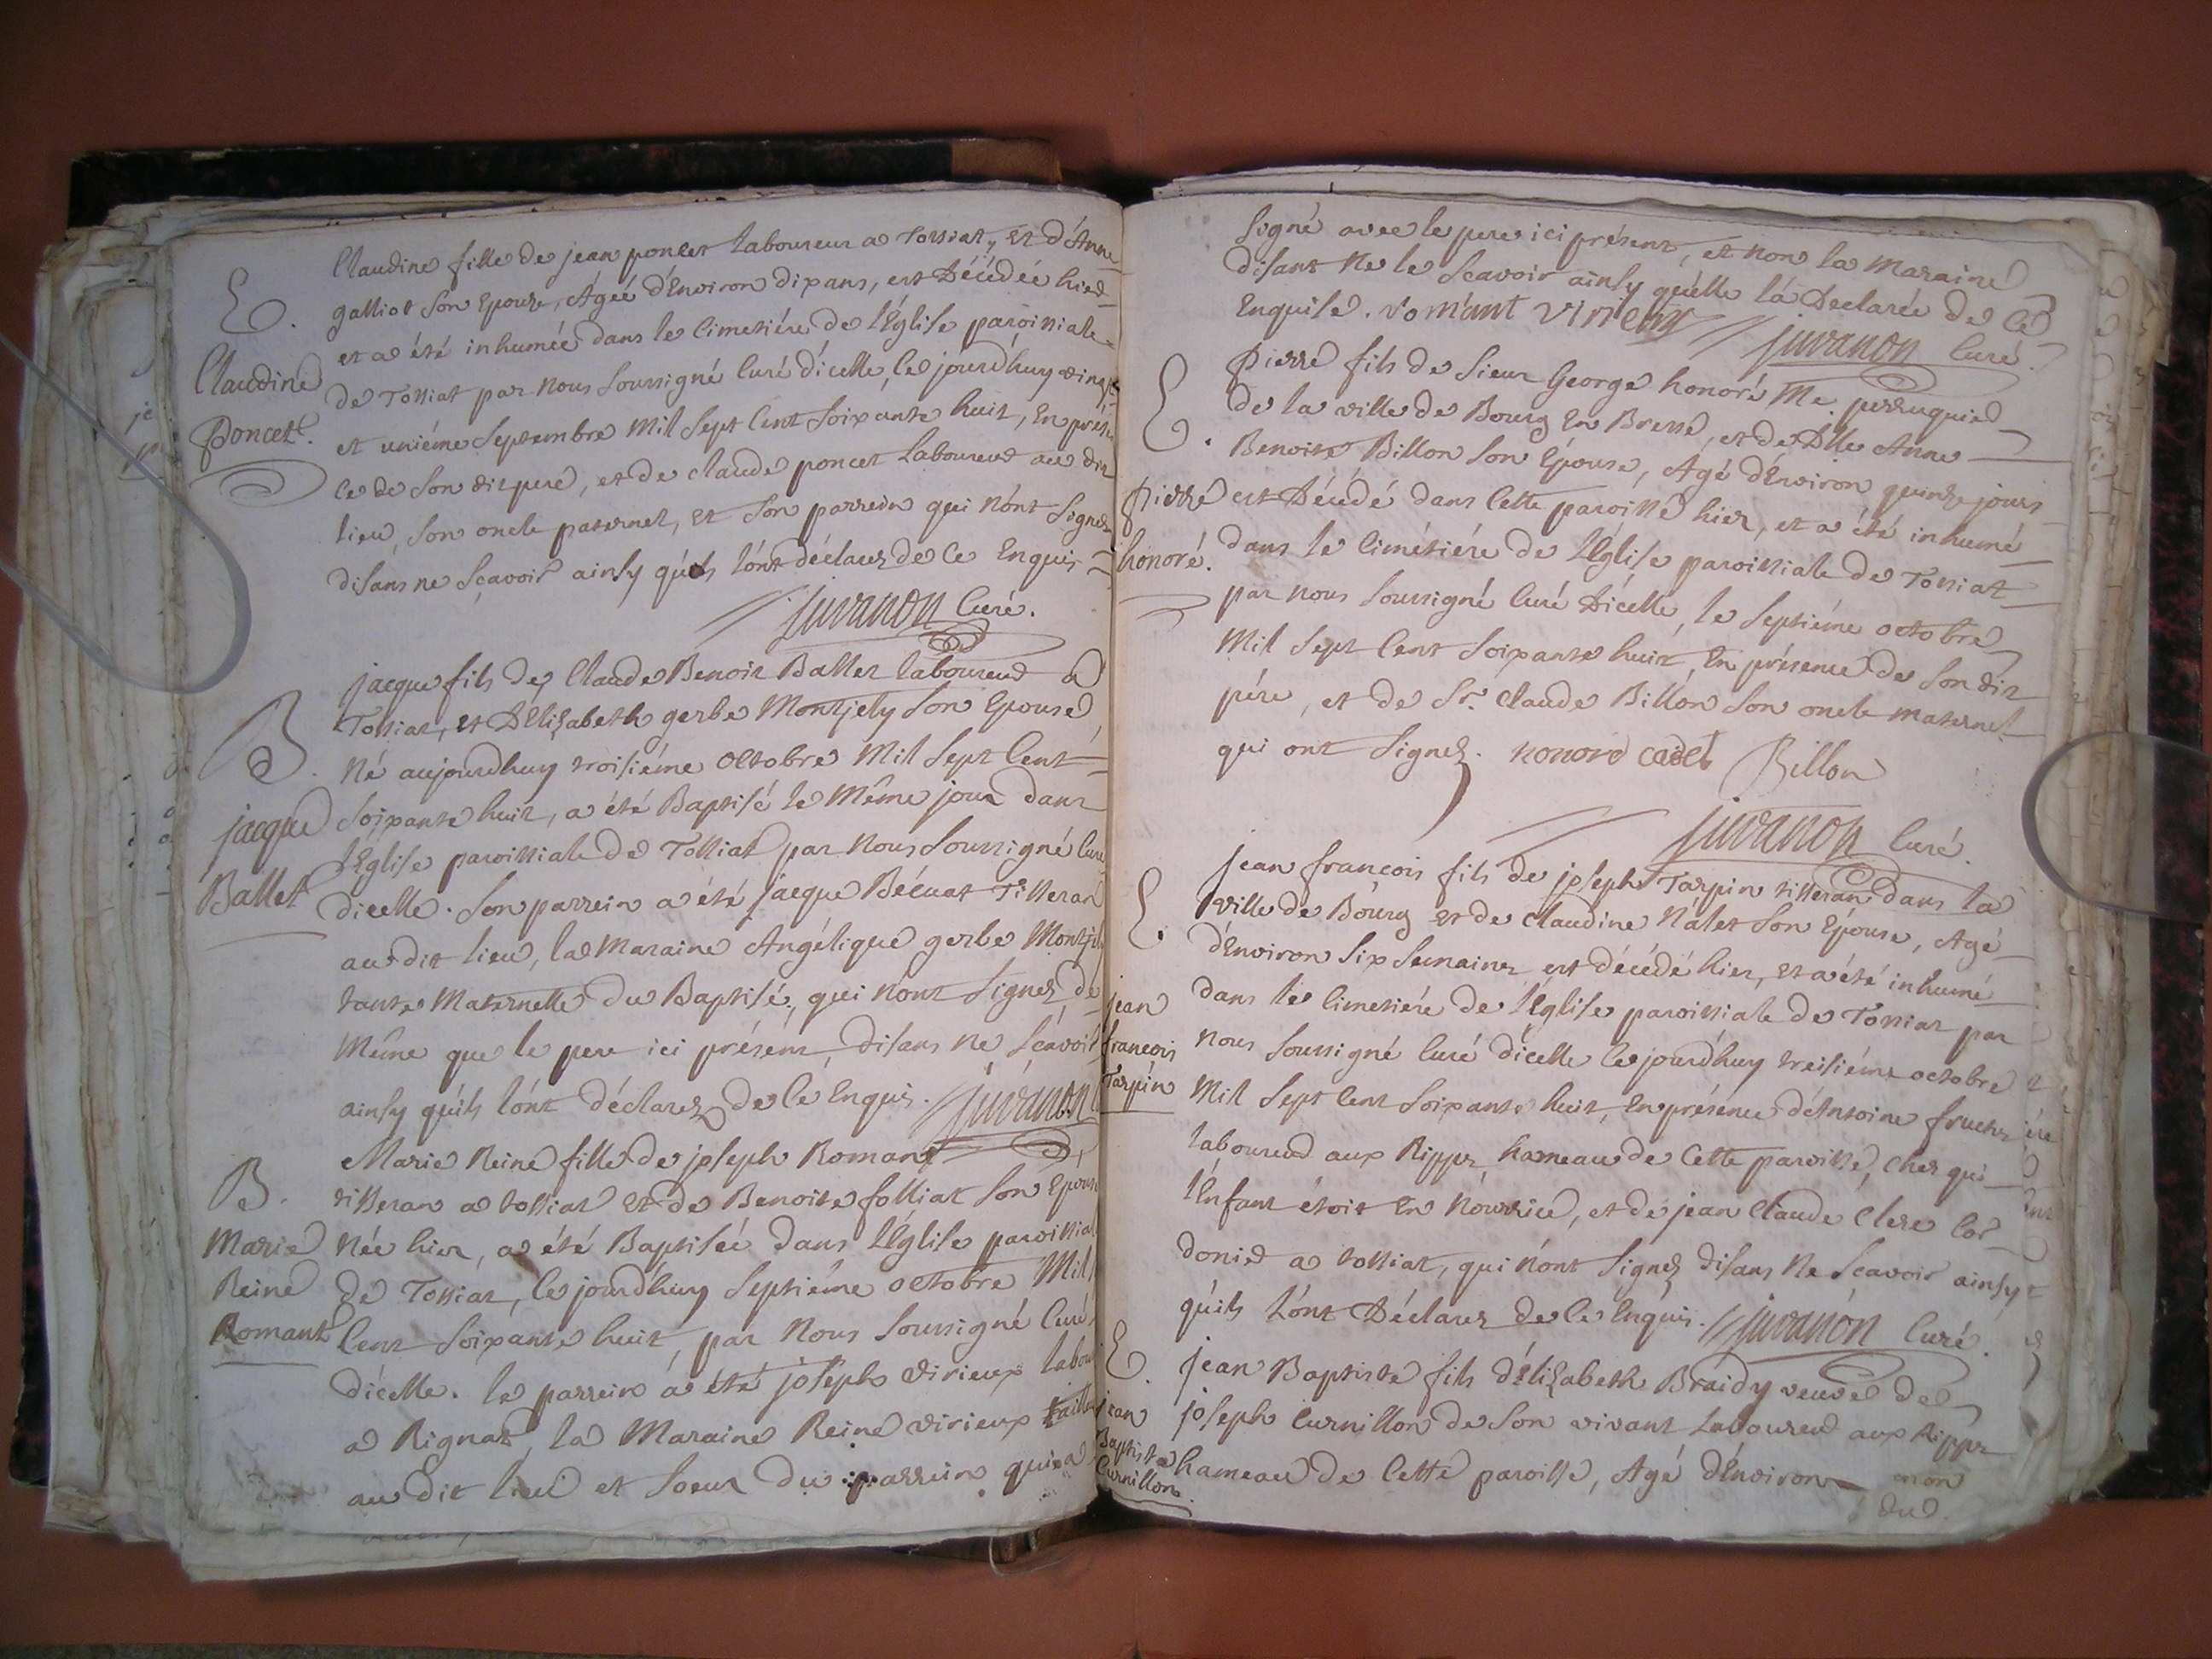 E.
Claudine
Poncet.
Claudine fille de jean poncet laboureur a Tossiat, et d'Anne
galliot son Epouse, Agéé d'Environ dix ans, est Décédéé hier
et a été inhuméé dans le Cimetiére de l'Eglise paroissiale
de Tossiat par nous soussigné Curé d'icelle, Ce jourd'huy vingt
et uniéme septembre Mil sept Cent soixante huit, En présen
ce de son dit pere, et de claude poncet Laboureur au dit
lieu, son oncle paternel, et son parrein qui n'ont signez
disans ne sçavoir ainsy qu'ils l'ont déclarez de Ce Enquis
juvanon Curé.
B.
jacque
Ballet
jacque fils de Claude Benoit Ballet laboureur a
Tossiat, et D'Elizabeth gerbe Montjely son Epouse,
Né aujourdhuy troisiéme Octobre Mil sept Cent
soixante huit, a été Baptisé le Même jour dans
l'Eglise paroissiale de Tossiat par Nous soussigné Curé
dicelle. son parrein a été jacque Bécuat Tisseran
au dit lieu, la Maraine Angélique gerbe Montjely
tante Maternelle du Baptisé, qui n'ont signez, de
Même que le pere ici présent, disans ne scavoir
ainsy qu'ils l'ont déclarez de Cé Enquis. juvanon
B.
Marie
Reine
Romant
Marie Reine fille de joseph Romant
tisseran a tossiat et de Benoite folliat son Epouse
Née hier, a été Baptiséé dans l'Eglise paroissiale
de Tossiat, Ce jourd'huy septiéme octobre Mil
Cent soixante huit, par Nous soussigné Curé
d'icelle. le parrein a été joseph virieux labou
a Rignat, la Maraine Reine virieux taill
au dit lieu et soeur du parrein qui a
signé avec le pere ici présent, et non la Maraine
disant Ne le scavoir ainsy qu'elle l'a Declarée de Cé
Enquise. romant virieux juvanon Curé.
E.
Pierre
honoré.
Pierre fils de sieur George honoré Me. perruquier
de la ville de Bourg En Bresse, et de Dlle Anne
Benoite Billon son Epouse, Agé d'Environ quinze jours
est Décédé dans Cette paroisse hier, et a été inhumé
dans le Cimétiére de l'Eglise paroissiale de Tossiat
par nous soussigné Curé D'icelle, le septiéme octobre
Mil sept Cent soixante huit, En présence de son dit
pére, et de Sr. Claude Billon son oncle maternel
qui ont signez. honore cadet Billon
juvanon Curé.
E.
jean
francois
Tarpin
jean francois fils de joseph Tarpin tisseran dans la
ville de Bourg et de claudine Nalet son Epouse, Agé
d'Environ six semaines est décédé hier, et a été inhumé
dans le Cimetiére de l'Eglise paroissiale de Tossiat par
nous soussigné Curé d'icelle Ce jourd'huy treisiéme octobre
Mil sept Cent soixante huit, En présence d'Antoine
laboureur aux Rippes hameau de Cette paroisse, Chez qui
l'Enfant étoit En Nourrice, et de jean Claude Clerc Cor
donier a tossiat, qui n'ont signez disans Ne scavoir ainsy
qu'ils l'ont Déclarez de Ce Enquis. juvanon Curé.
E.
jean
Baptiste
Curnillon.
jean Baptiste fils d'élizabeth Braidy veuve de
joseph Curnillon de son vivant Laboureur aux Rippes
hameau de Cette paroisse, Agé d'Environ